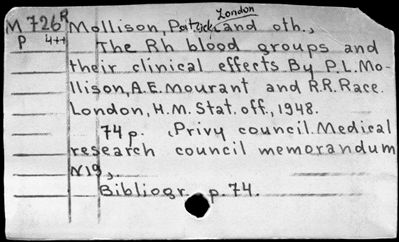 London
M 726R Mollison, Patrick and oth.,
P 4++ The Rh blood groups and
their clinical effects By P.L.Mo-
llison, A.E.Mourant and R.R.Race.
London, H.M. Stat. off., 1948.
74 p. (Privy council. Medical
research council memorandum
N19),
Bibliogr. p. 74.